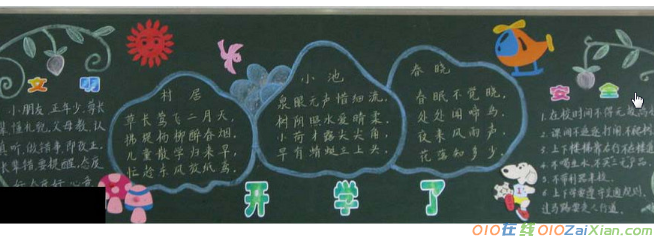 文明
小朋友 正年少，尊长
村居
草长莺飞二月天，
拂堤杨柳醉春烟。
儿童散学归来早，
忙趁东风放纸鸢。
小池
泉眼无声惜细流，
树阴照水爱晴柔。
小荷才露尖尖角，
早有蜻蜓立上头。
春晓
春眠不觉晓，
处处闻啼鸟。
夜来风雨声，
花落知多少。
安全
1.在校时间不得无故
2.课间不追逐打闹不爬树
3.上下楼梯靠右行不在楼道
4.不喝生水，不买三无产品。
5.不带
6.上下学要遵守交通规则，
过马路要走人行道。
开学了
010在线010ZaiXian.com